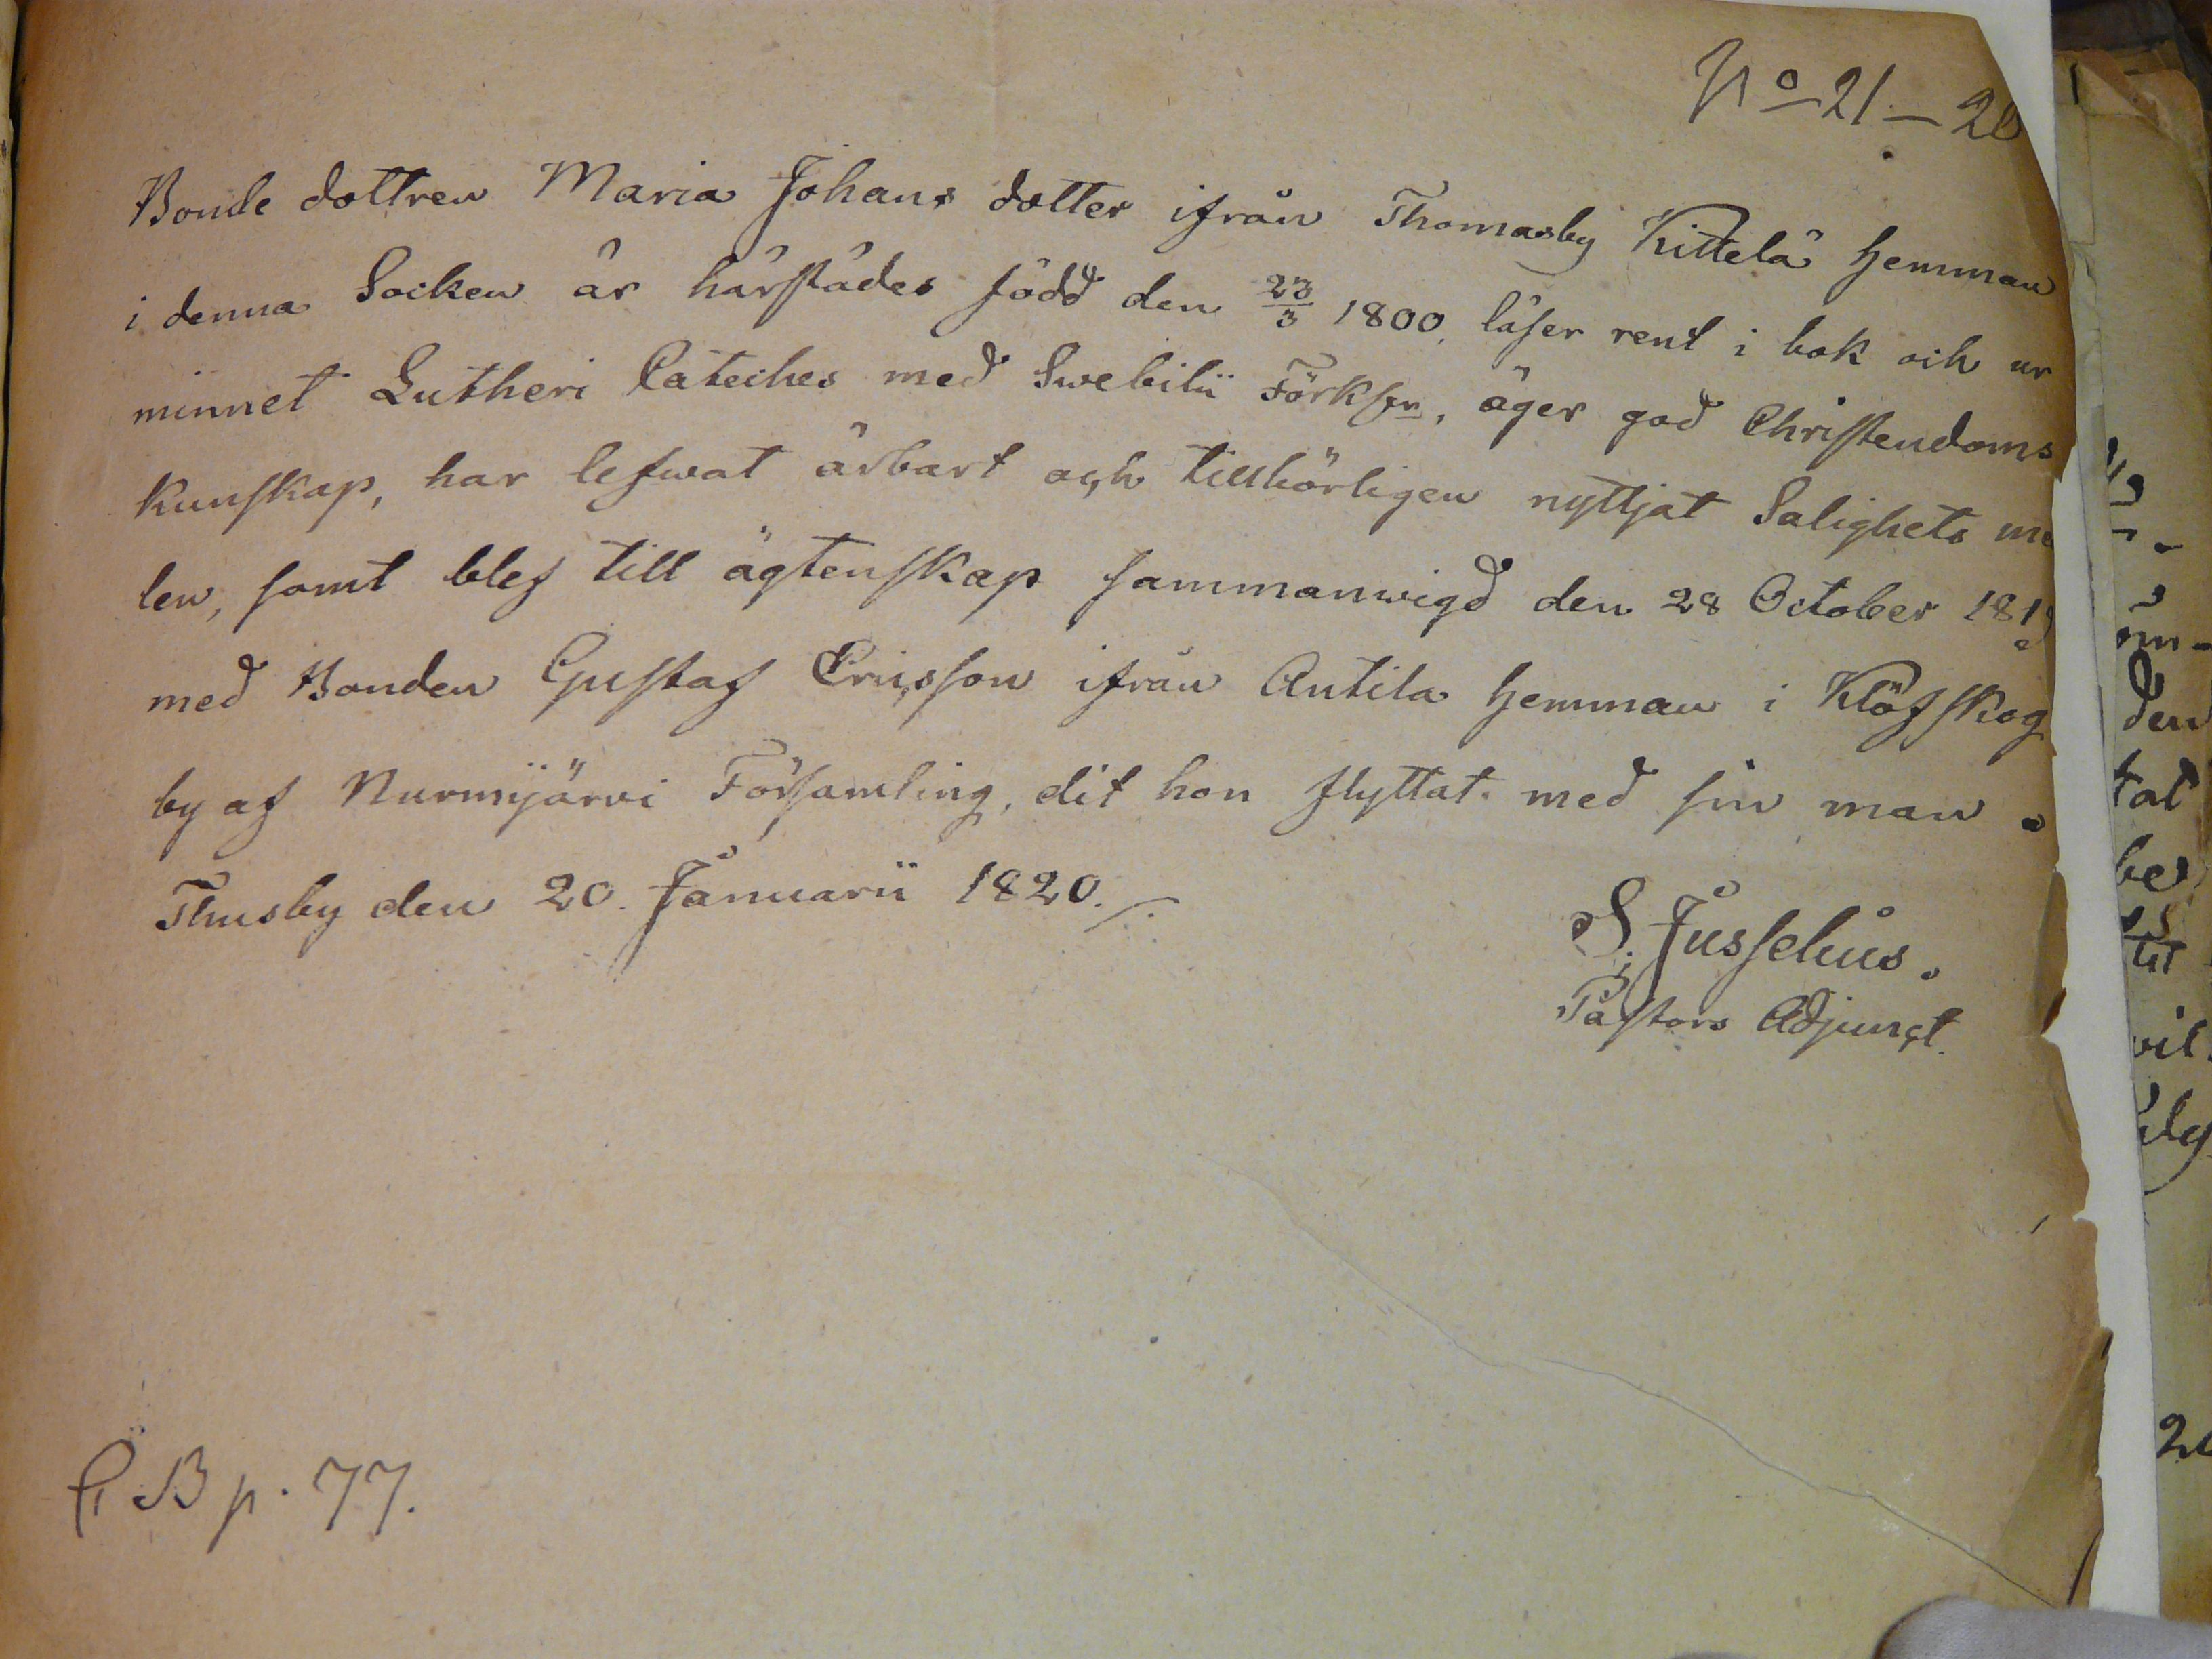 No 21 — 20
Bonde dottren Maria Johans dotter ifrån Thomasby Kittelä Hemman
i denna Socken är härstädes född den 23/3 1800, läser rent i bok och ur
minnet Lutheri Cateches med Swebilii Förklr, äger god Christendoms
kunskap, har lefwat ärbart och tillbörligen nyttjat Salighets me
len, samt blef till ägtenskap sammanwigd den 28 October 1819
med Bonden Gustaf Ericsson ifrån Antila Hemman i Klöfskog
by af Nurmijärvi Församling, dit hon flyttat med sin man.
Thusby den 20. Januarii 1820.
S. Jusselius.
Pastors Adjunct.
B p. 77.
den
tat